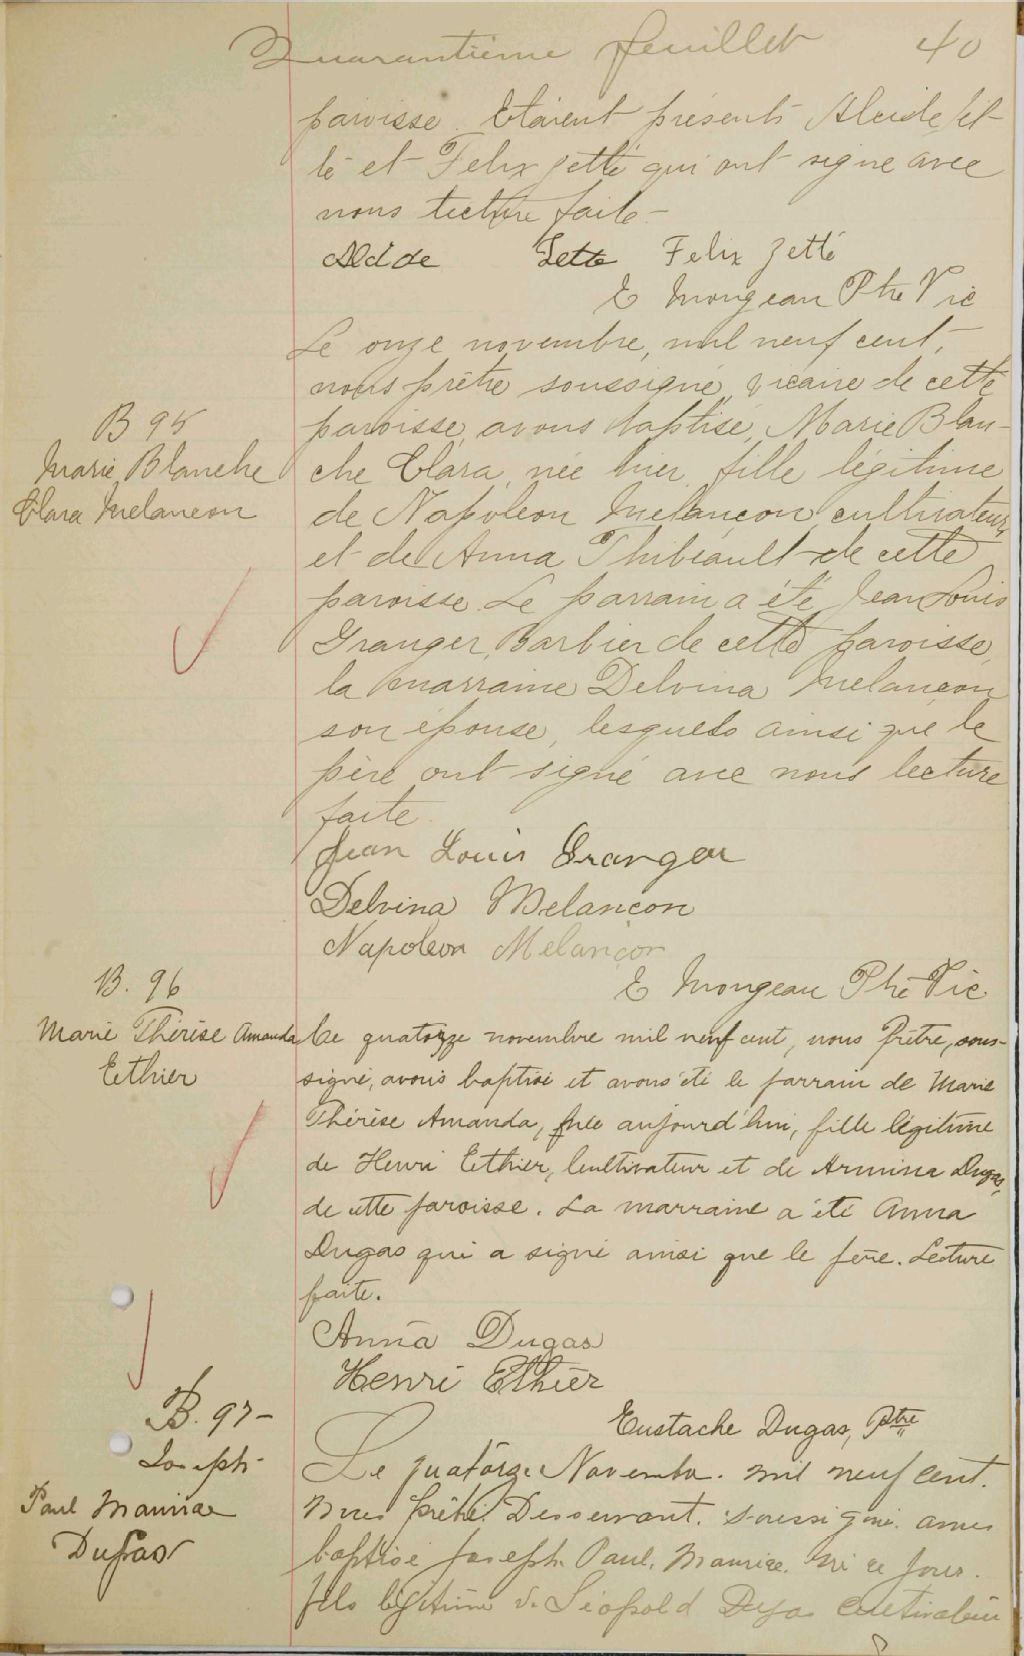 Quarantième feuillet 40
paroisse. Etaient présents Alcide Jet-
té et Felix Jetté qui ont signé avec
nous lecture faite -
Alcide Jette Felix Jetté
E Mongeau Ptre Vic
Le onze novembre, mil neuf cent,
nous prêtre soussigné, vicaire de cette
B 95
paroisse, avons baptisé, Marie Blan-
Marie Blanche
che Clara, née hier, fille légitime
Clara Melancon
de Napoleon Melançon cultivateur,
et de Anna Thibeault de cette
paroisse. Le parrain a été Jean Louis
Granger, Barbier de cette paroisse,
la marraine Delvina Melançon
son épouse, lesquels ainsi que le
père ont signé avec nous lecture
faite.
Jean Louis Granger
Delvina Melancon
Napoleon Melançon
B. 96
E Mongeau Ptre Vic.
Marie Thérèse Amanda
Ce quatorze novembre mil neuf cent, nous Prêtre, sous-
Ethier
signé, avons baptisé et avons été le parrain de Marie
Thérèse Amanda, née aujourd'hui, fille légitime
de Henri Ethier, cultivateur et de Armina Dugas,
de cette paroisse. La marraine a été Anna
Dugas qui a signé ainsi que le père. Lecture
faite.
Anna Dugas
Henri Ethier
B. 97-
Eustache Dugas, Ptre
Joseph
Le quatorze Novembre. mil neuf cent.
Paul Maurice
Nous prêtre Desservant. soussigné. avons
Dugas
baptisé Joseph. Paul. Maurice. né ce jour.
fils légitime de Léopold Dugas cultivateur